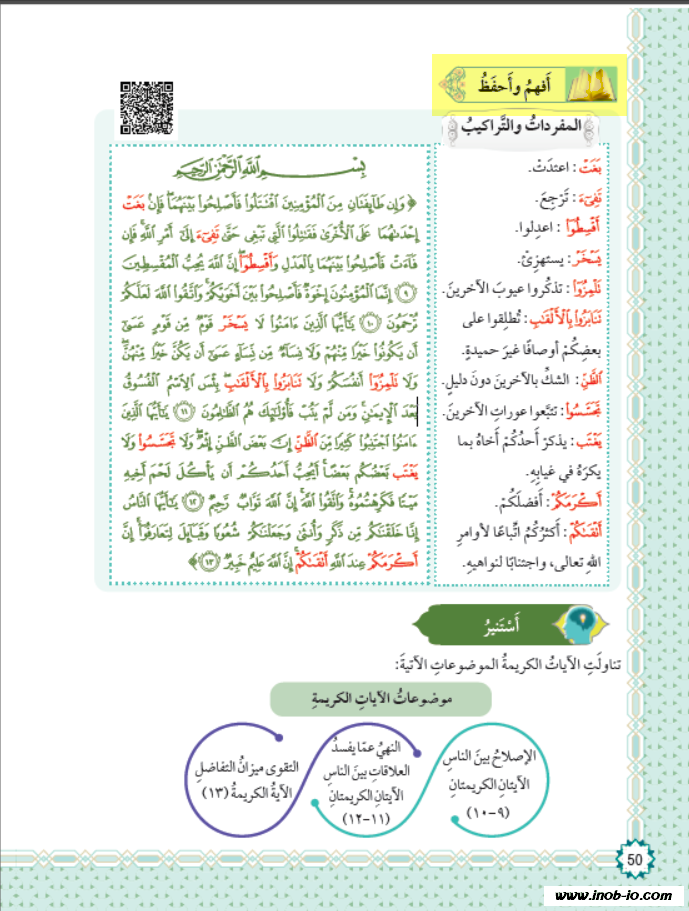 أَفهمُ وأَحفَظُ
المفرداتُ والتَّراكيبُ
بَغَتْ : اعتدَتْ.
تَفِيٓءَ : تَرْجِعَ.
أَقْسِطُوٓاْ : اعدِلوا.
يَسْخَرْ: يستهزِئْ.
تَلْمِزُوٓاْ: تذكُروا عيوبَ الآخرينَ.
تَنَابَزُواْ بِٱلْأَلْقَٰبِ: تُطلِقوا على
بعضِكُمْ أوصافًا غيرَ حميدةٍ.
ٱلظَّنِّ: الشكِّ بالآخرينَ دونَ دليلٍ.
تَجَسَّسُواْ: تتبَّعوا عوراتِ الآخرينَ.
يَغْتَب: يذكرْ أَحدُكُمْ أَخاهُ بما
يكرَهُ في غيابِهِ.
أَكْرَمَكُمْ: أَفضلَكُمْ.
أَتْقَىٰكُمْ: أكثرُكُمُ اتِّباعًا لأوامرِ
اللهِ تعالى، واجتنابًا لنواهيهِ.
بِسْمِ ٱللَّهِ ٱلرَّحْمَٰنِ ٱلرَّحِيمِ
﴿ وَإِن طَآئِفَتَانِ مِنَ ٱلْمُؤْمِنِينَ ٱقْتَتَلُواْ فَأَصْلِحُواْ بَيْنَهُمَاۖ فَإِنۢ بَغَتْ
إِحْدَىٰهُمَا عَلَى ٱلْأُخْرَىٰ فَقَٰتِلُواْ ٱلَّتِي تَبْغِي حَتَّىٰ تَفِيٓءَ إِلَىٰٓ أَمْرِ ٱللَّهِۚ فَإِن
فَآءَتْ فَأَصْلِحُواْ بَيْنَهُمَا بِٱلْعَدْلِ وَأَقْسِطُوٓاْۖ إِنَّ ٱللَّهَ يُحِبُّ ٱلْمُقْسِطِينَ
٩ إِنَّمَا ٱلْمُؤْمِنُونَ إِخْوَةٌ فَأَصْلِحُواْ بَيْنَ أَخَوَيْكُمْۚ وَٱتَّقُواْ ٱللَّهَ لَعَلَّكُمْ
تُرْحَمُونَ ١٠ يَٰٓأَيُّهَا ٱلَّذِينَ ءَامَنُواْ لَا يَسْخَرْ قَوْمٌ مِّن قَوْمٍ عَسَىٰٓ
أَن يَكُونُواْ خَيْرًا مِّنْهُمْ وَلَا نِسَآءٌ مِّن نِّسَآءٍ عَسَىٰٓ أَن يَكُنَّ خَيْرًا مِّنْهُنَّۖ
وَلَا تَلْمِزُوٓاْ أَنفُسَكُمْ وَلَا تَنَابَزُواْ بِٱلْأَلْقَٰبِۖ بِئْسَ ٱلِٱسْمُ ٱلْفُسُوقُ
بَعْدَ ٱلْإِيمَٰنِۚ وَمَن لَّمْ يَتُبْ فَأُوْلَٰٓئِكَ هُمُ ٱلظَّٰلِمُونَ ١١ يَٰٓأَيُّهَا ٱلَّذِينَ
ءَامَنُواْ ٱجْتَنِبُواْ كَثِيرًا مِّنَ ٱلظَّنِّ إِنَّ بَعْضَ ٱلظَّنِّ إِثْمٌۖ وَلَا تَجَسَّسُواْ وَلَا
يَغْتَب بَّعْضُكُم بَعْضًاۚ أَيُحِبُّ أَحَدُكُمْ أَن يَأْكُلَ لَحْمَ أَخِيهِ
مَيْتًا فَكَرِهْتُمُوهُۚ وَٱتَّقُواْ ٱللَّهَۚ إِنَّ ٱللَّهَ تَوَّابٌ رَّحِيمٌ ١٢ يَٰٓأَيُّهَا ٱلنَّاسُ
إِنَّا خَلَقْنَٰكُم مِّن ذَكَرٍ وَأُنثَىٰ وَجَعَلْنَٰكُمْ شُعُوبًا وَقَبَآئِلَ لِتَعَارَفُوٓاْۚ إِنَّ
أَكْرَمَكُمْ عِندَ ٱللَّهِ أَتْقَىٰكُمْۚ إِنَّ ٱللَّهَ عَلِيمٌ خَبِيرٌ ١٣ ﴾
أَسْتَنيرُ
تناولَتِ الآياتُ الكريمةُ الموضوعاتِ الآتيةَ:
موضوعاتُ الآياتِ الكريمةِ
الإصلاحُ بينَ الناسِ
الآيتانِ الكريمتانِ
(٩-١٠)
النهيُ عمّا يفسدُ
العلاقاتِ بينَ الناسِ
الآيتانِ الكريمتانِ
(١١-١٢)
التقوى ميزانُ التفاضلِ
الآيةُ الكريمةُ (١٣)
50
www.inob-jo.com